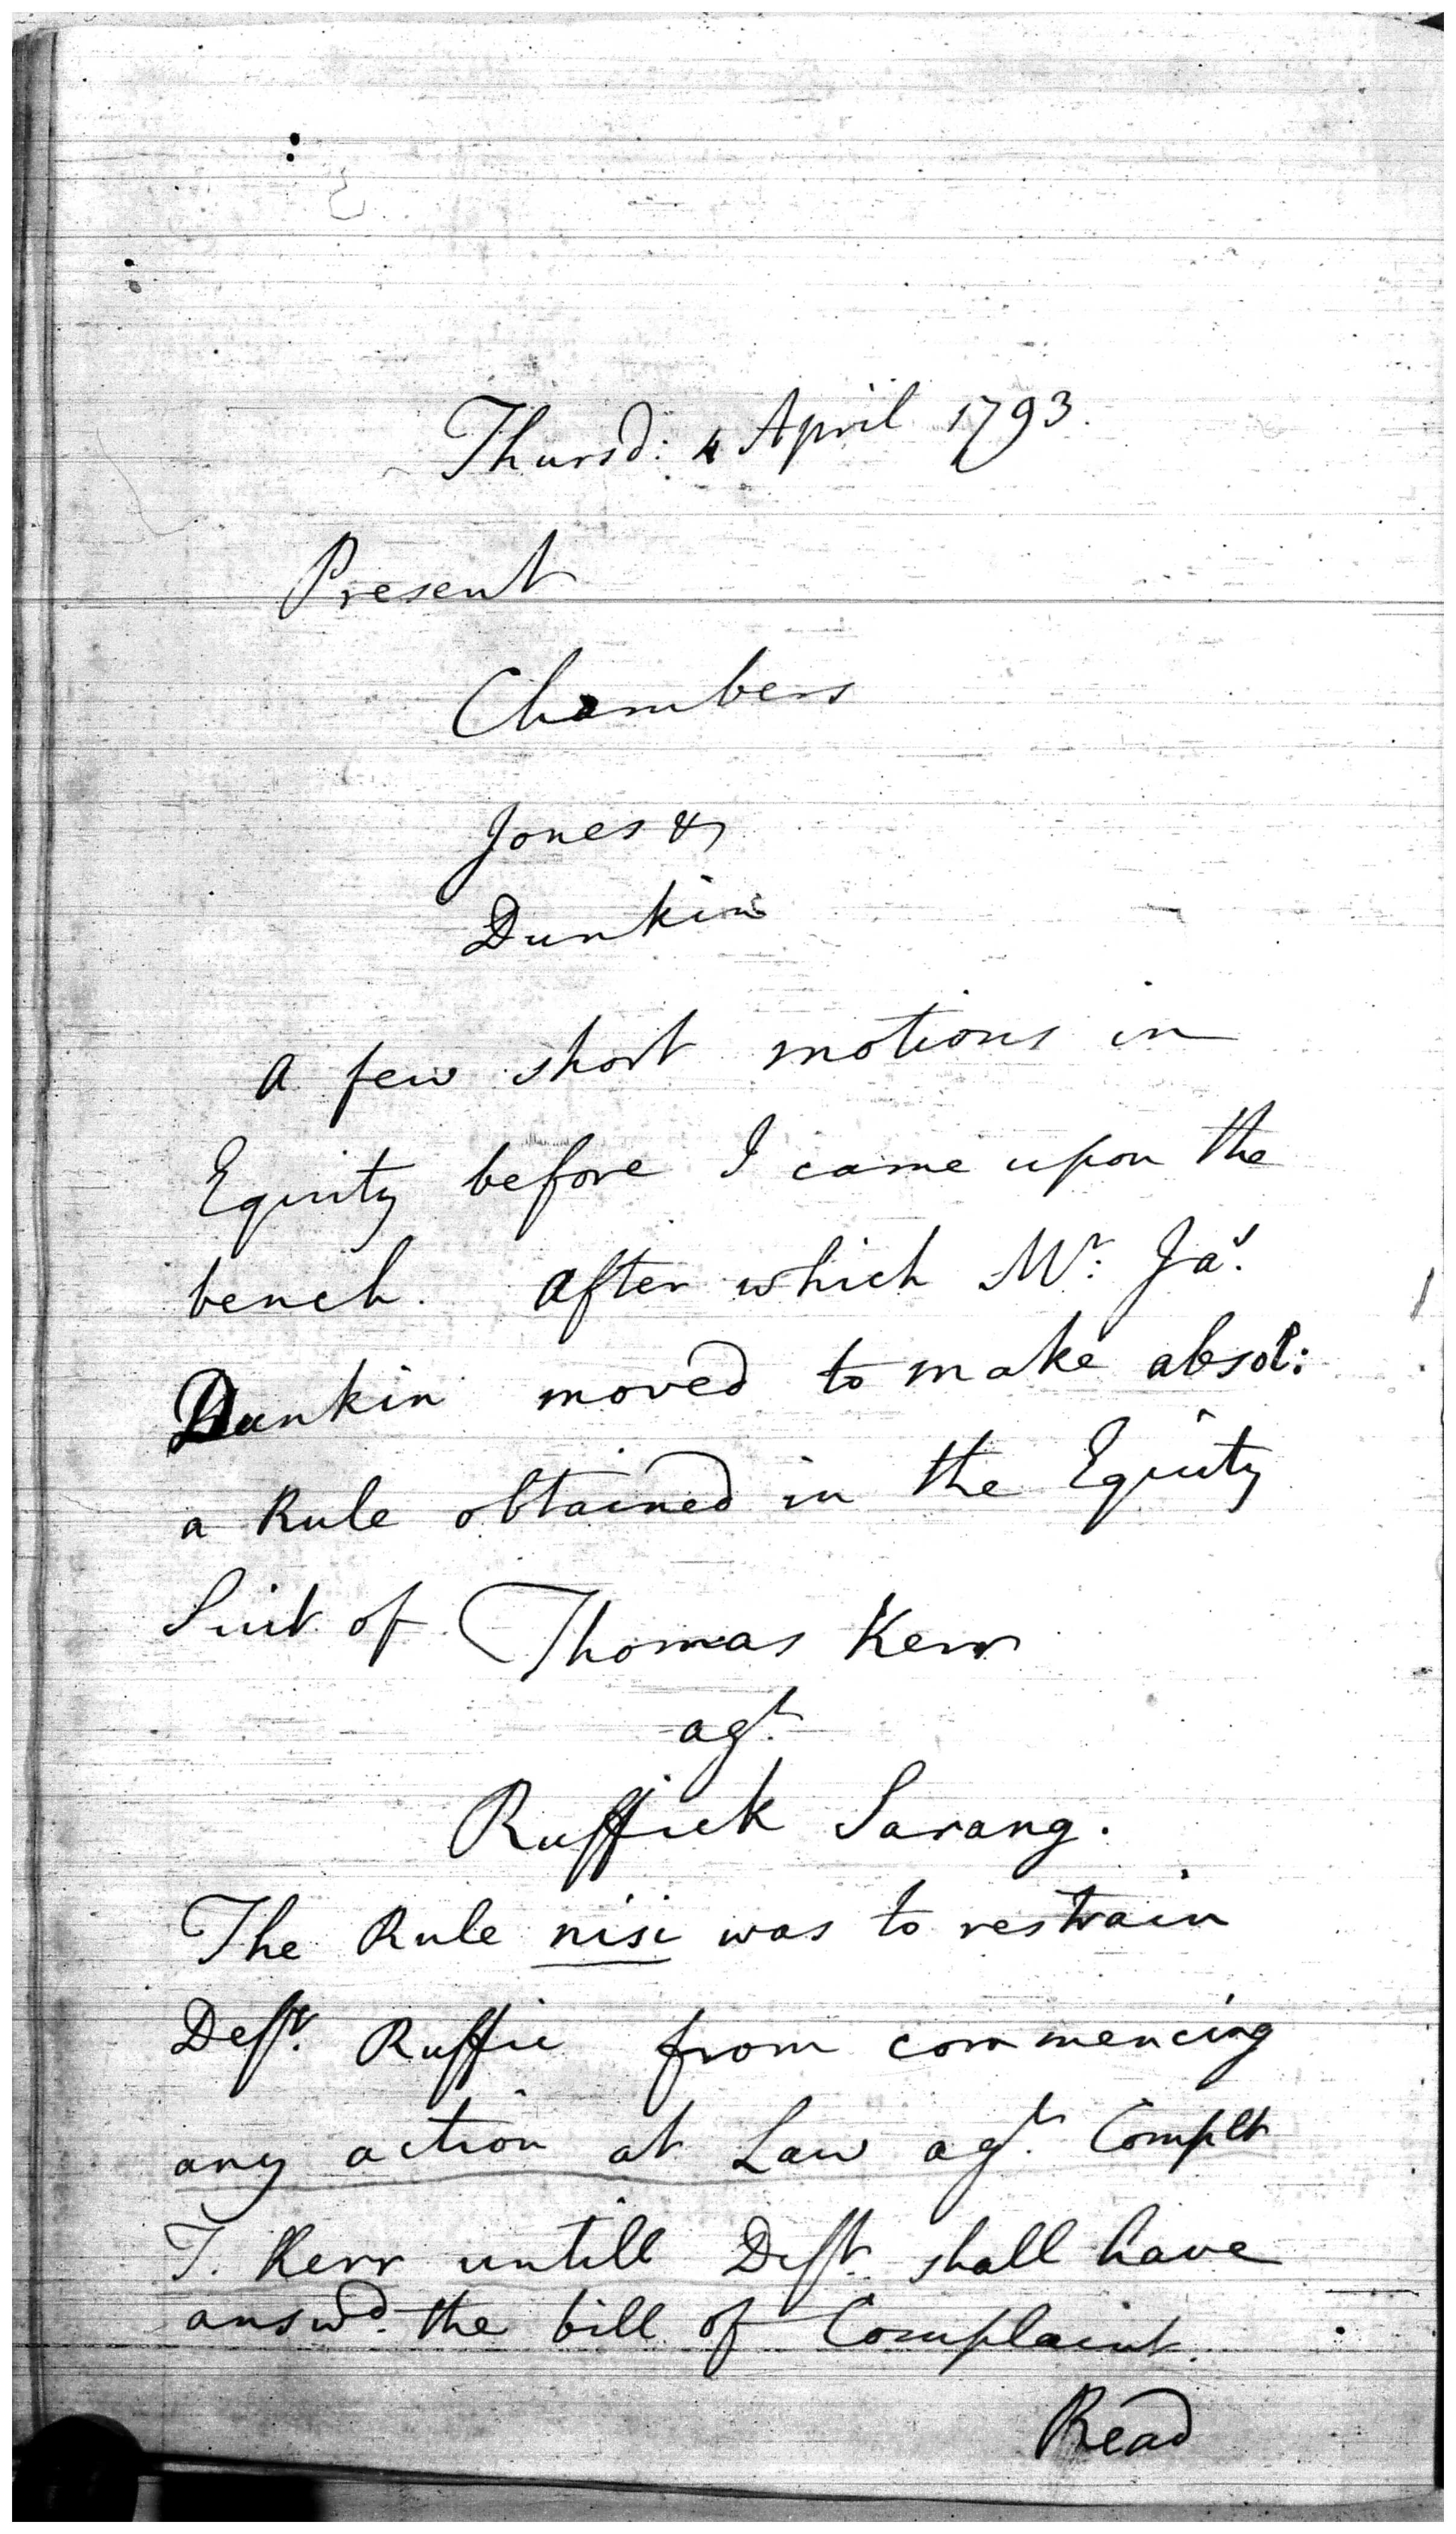 Thursd: 4 April 1793.
Present
Chambers
Jones &
Dunkin
A few short motions in
Equity before I came upon the
bench. After which Mr: Jas.
Dunkin moved to make absol:
a Rule obtained in the Equity
Suit of Thomas Kerr
agt.
Ruffick Sarang.
The Rule nisi was to restrain
Deft. Ruffic from commencing
any action at Law agt. Complt
T. Kerr untill Deft. shall have
answd. the bill of Complaint.
Read